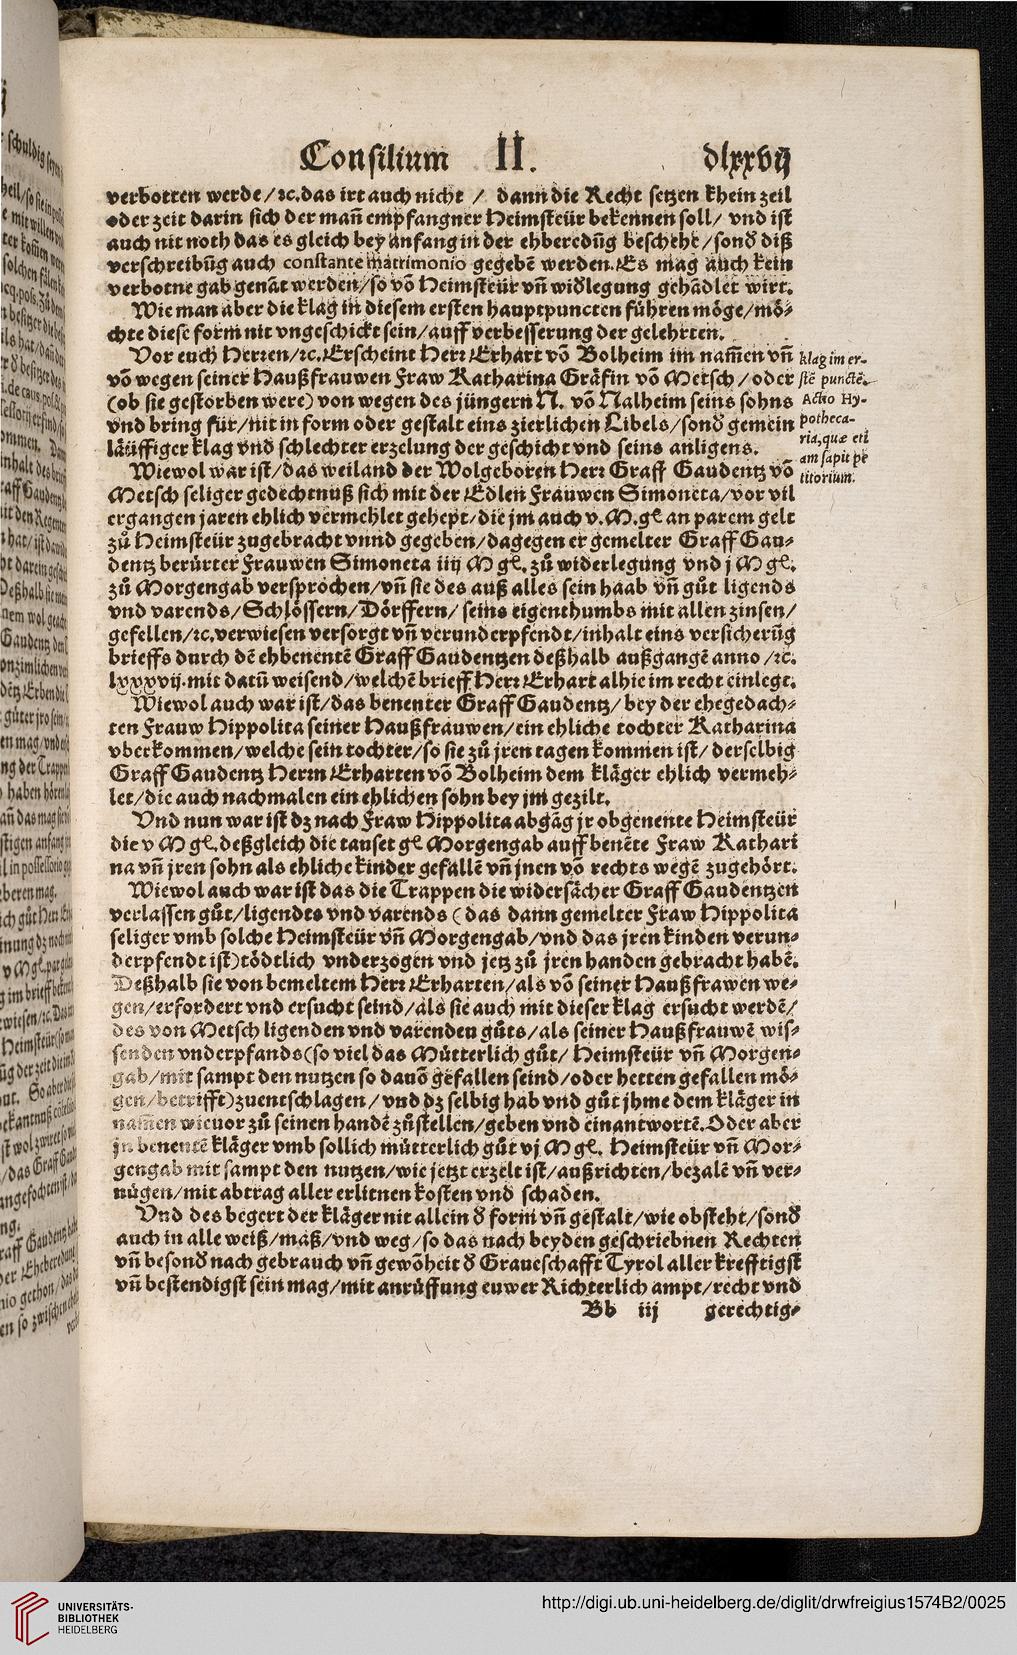 Consilium II. dlxxvij
verbotten werde/ ꝛc. das irt auch nicht / dann die Recht setzen khein zeil
oder zeit darin sich der mañ empfangner Heimsteür bekennen soll/ vnd ist
auch nit noth das es gleich bey anfang in der ehberedũg beschehe/ sond̾ diß
verschreibũg auch constante matrimonio gegebẽ werden. Es mag auch kein
verbotne gab genãt werden/ so võ Heimsteür vñ wid̾legung gehãdlet wirt.
Wie man aber die klag in diesem ersten hauptpuncten führen möge/ mö⸗
chte diese form nit vngeschickt sein/ auff verbesserung der gelehrten.
Vor euch Herren/ ꝛc. Erscheint Herr Erhart võ Bolheim im nam̃en vñ
võ wegen seiner Haußfrauwen Fraw Katharina Gräfin võ Metsch/ oder
(ob sie gestorben were) von wegen des jüngern N. võ Nalheim seins sohns
vnd bring für/ nit in form oder gestalt eins zierlichen Libels/ sond̾ gemein
läüffiger klag vnd schlechter erzelung der geschicht vnd seins anligens.
klag im er-
stẽ punctẽ.
Actio Hy-
potheca-
ria, quæ eti
am sapit pe
titorium.
Wiewol war ist/ das weiland der Wolgeboren Herr Graff Gaudentz võ
Metsch seliger gedechtnuß sich mit der Edlen Frauwen Simoneta/ vor vil
ergangen jaren ehlich vermehlet gehept/ die jm auch v. M. gl̃ an parem gelt
zů Heimsteür zugebracht vnnd gegeben/ dagegen er gemelter Graff Gau⸗
dentz berürter Frauwen Simoneta iiij M gl̃. zů widerlegung vnd j M gl̃.
zů Morgengab versprochen/ vñ sie des auß alles sein haab vñ gůt ligends
vnd varends/ Schlössern/ Dörffern/ seins eigenthumbs mit allen zinsen/
gefellen/ ꝛc. verwiesen versorgt vñ verunderpfendt/ inhalt eins versicherũg
brieffs durch dẽ ehbenentẽ Graff Gaudentzen deßhalb außgangẽ anno / ꝛc.
lxxxvij. mit datũ weisend/ welchẽ brieff Herr Erhart alhie im recht einlegt.
Wiewol auch war ist/ das benenter Graff Gaudentz/ bey der ehegedach⸗
ten Frauw Hippolita seiner Haußfrauwen/ ein ehliche tochter Katharina
vberkommen/ welche sein tochter/ so sie zů jren tagen kommen ist/ derselbig
Graff Gaudentz Herrn Erharten võ Bolheim dem kläger ehlich vermeh⸗
let/ die auch nachmalen ein ehlichen sohn bey jm gezilt.
Vnd nun war ist dz nach Fraw Hippolita abgãg jr obgenente Heimsteür
die v M gl̃. deßgleich die tauset gl̃ Morgengab auff benẽte Fraw Kathari
na vñ jren sohn als ehliche kinder gefallẽ vñ jnen võ rechts wegẽ zugehört.
Wiewol auch war ist das die Trappen die widersächer Graff Gaudentzen
verlassen gůt/ ligendts vnd varends ( das dann gemelter Fraw Hippolita
seliger vmb solche Heimsteür vñ Morgengab/ vnd das jren kinden verun⸗
derpfendt ist) tödtlich vnderzogen vnd jetz zů jren handen gebracht habẽ.
Deßhalb sie von bemeltem Herr Erharten/ als võ seiner Haußfrawen we⸗
gen/ erfordert vnd ersucht seind/ als sie auch mit dieser klag ersucht werdẽ/
des von Metsch ligenden vnd varenden gůts/ als seiner Haußfrauwẽ wis⸗
senden vnderpfands (so viel das Mütterlich gůt/ Heimsteür vñ Morgen⸗
gab/ mit sampt den nutzen so dauõ gefallen seind/ oder hetten gefallen mö⸗
gen/ betrifft) zuentschlagen/ vnd dz selbig hab vnd gůt jhme dem kläger in
nam̃en wieuor zů seinen handẽ zůstellen/ geben vnd einantwortẽ. Oder aber
jn benentẽ kläger vmb sollich mütterlich gůt vj M gl̃. Heimsteür vñ Mor⸗
gengab mit sampt den nutzen/ wie jetzt erzelt ist/ außrichten/ bezalẽ vñ ver⸗
nügen/ mit abtrag aller erlitnen kosten vnd schaden.
Vnd des begert der kläger nit allein d̾ form vñ gestalt/ wie obsteht/ sond̾
auch in alle weiß/ maß/ vnd weg/ so das nach beyden geschriebnen Rechten
vñ besond̾ nach gebrauch vñ gewõheit d̾ Graueschafft Tyrol aller krefftigst
vñ bestendigst sein mag/ mit anrüffung euwer Richterlich ampt/ recht vnd
Bb iij gerechtig⸗
UNIVERSITÄTS-
BIBLIOTHEK
HEIDELBERG
http://digi.ub.uni-heidelberg.de/diglit/drwfreigius1574B2/0025